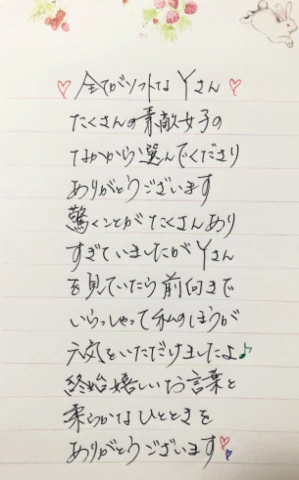 ♡全てがソフトな Yさん♡
たくさんの素敵女子の
なかから選んでくださり
ありがとうございます
驚くことがたくさんあり
すぎていましたが Yさん
を見ていたら前向きで
いらっしゃって私のほうが
元気をいただけましたよ♪
終始嬉しいお言葉と
柔らかなひとときを
ありがとうございます♡